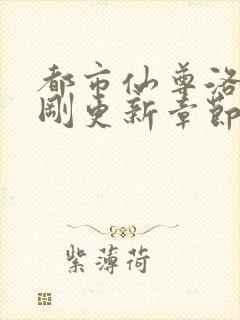 都市仙尊洛
刚更新章节
紫薄荷